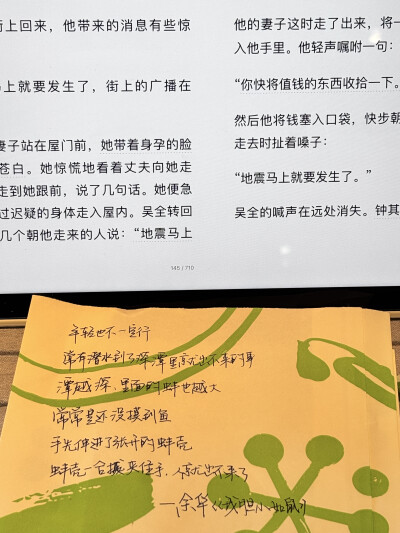 街上回来，他带来的消息有些惊
马上就要发生了，街上的广播在
妻子站在屋门前，她带着身孕的脸
苍白。她惊慌地看着丈夫向她走
走到她跟前，说了几句话。她便急
过迟疑的身体走入屋内。吴全转回
几个朝他走来的人说：“地震马上
145 / 710
他的妻子这时走了出来，将一
入他手里。他轻声嘱咐一句：
“你快将值钱的东西收拾一下。
然后他将钱塞入口袋，快步朝
走去时扯着嗓子：
“地震马上就要发生了。”
吴全的喊声在远处消失。钟其
年轻也不一定行
常有潜水到了深潭里就出不来的事
潭越深，里面的蚌也越大
常常是还没摸到鱼
手先伸进了张开的蚌壳
蚌壳一合拢夹住手，人就出不来了
—余华《我胆小如鼠》